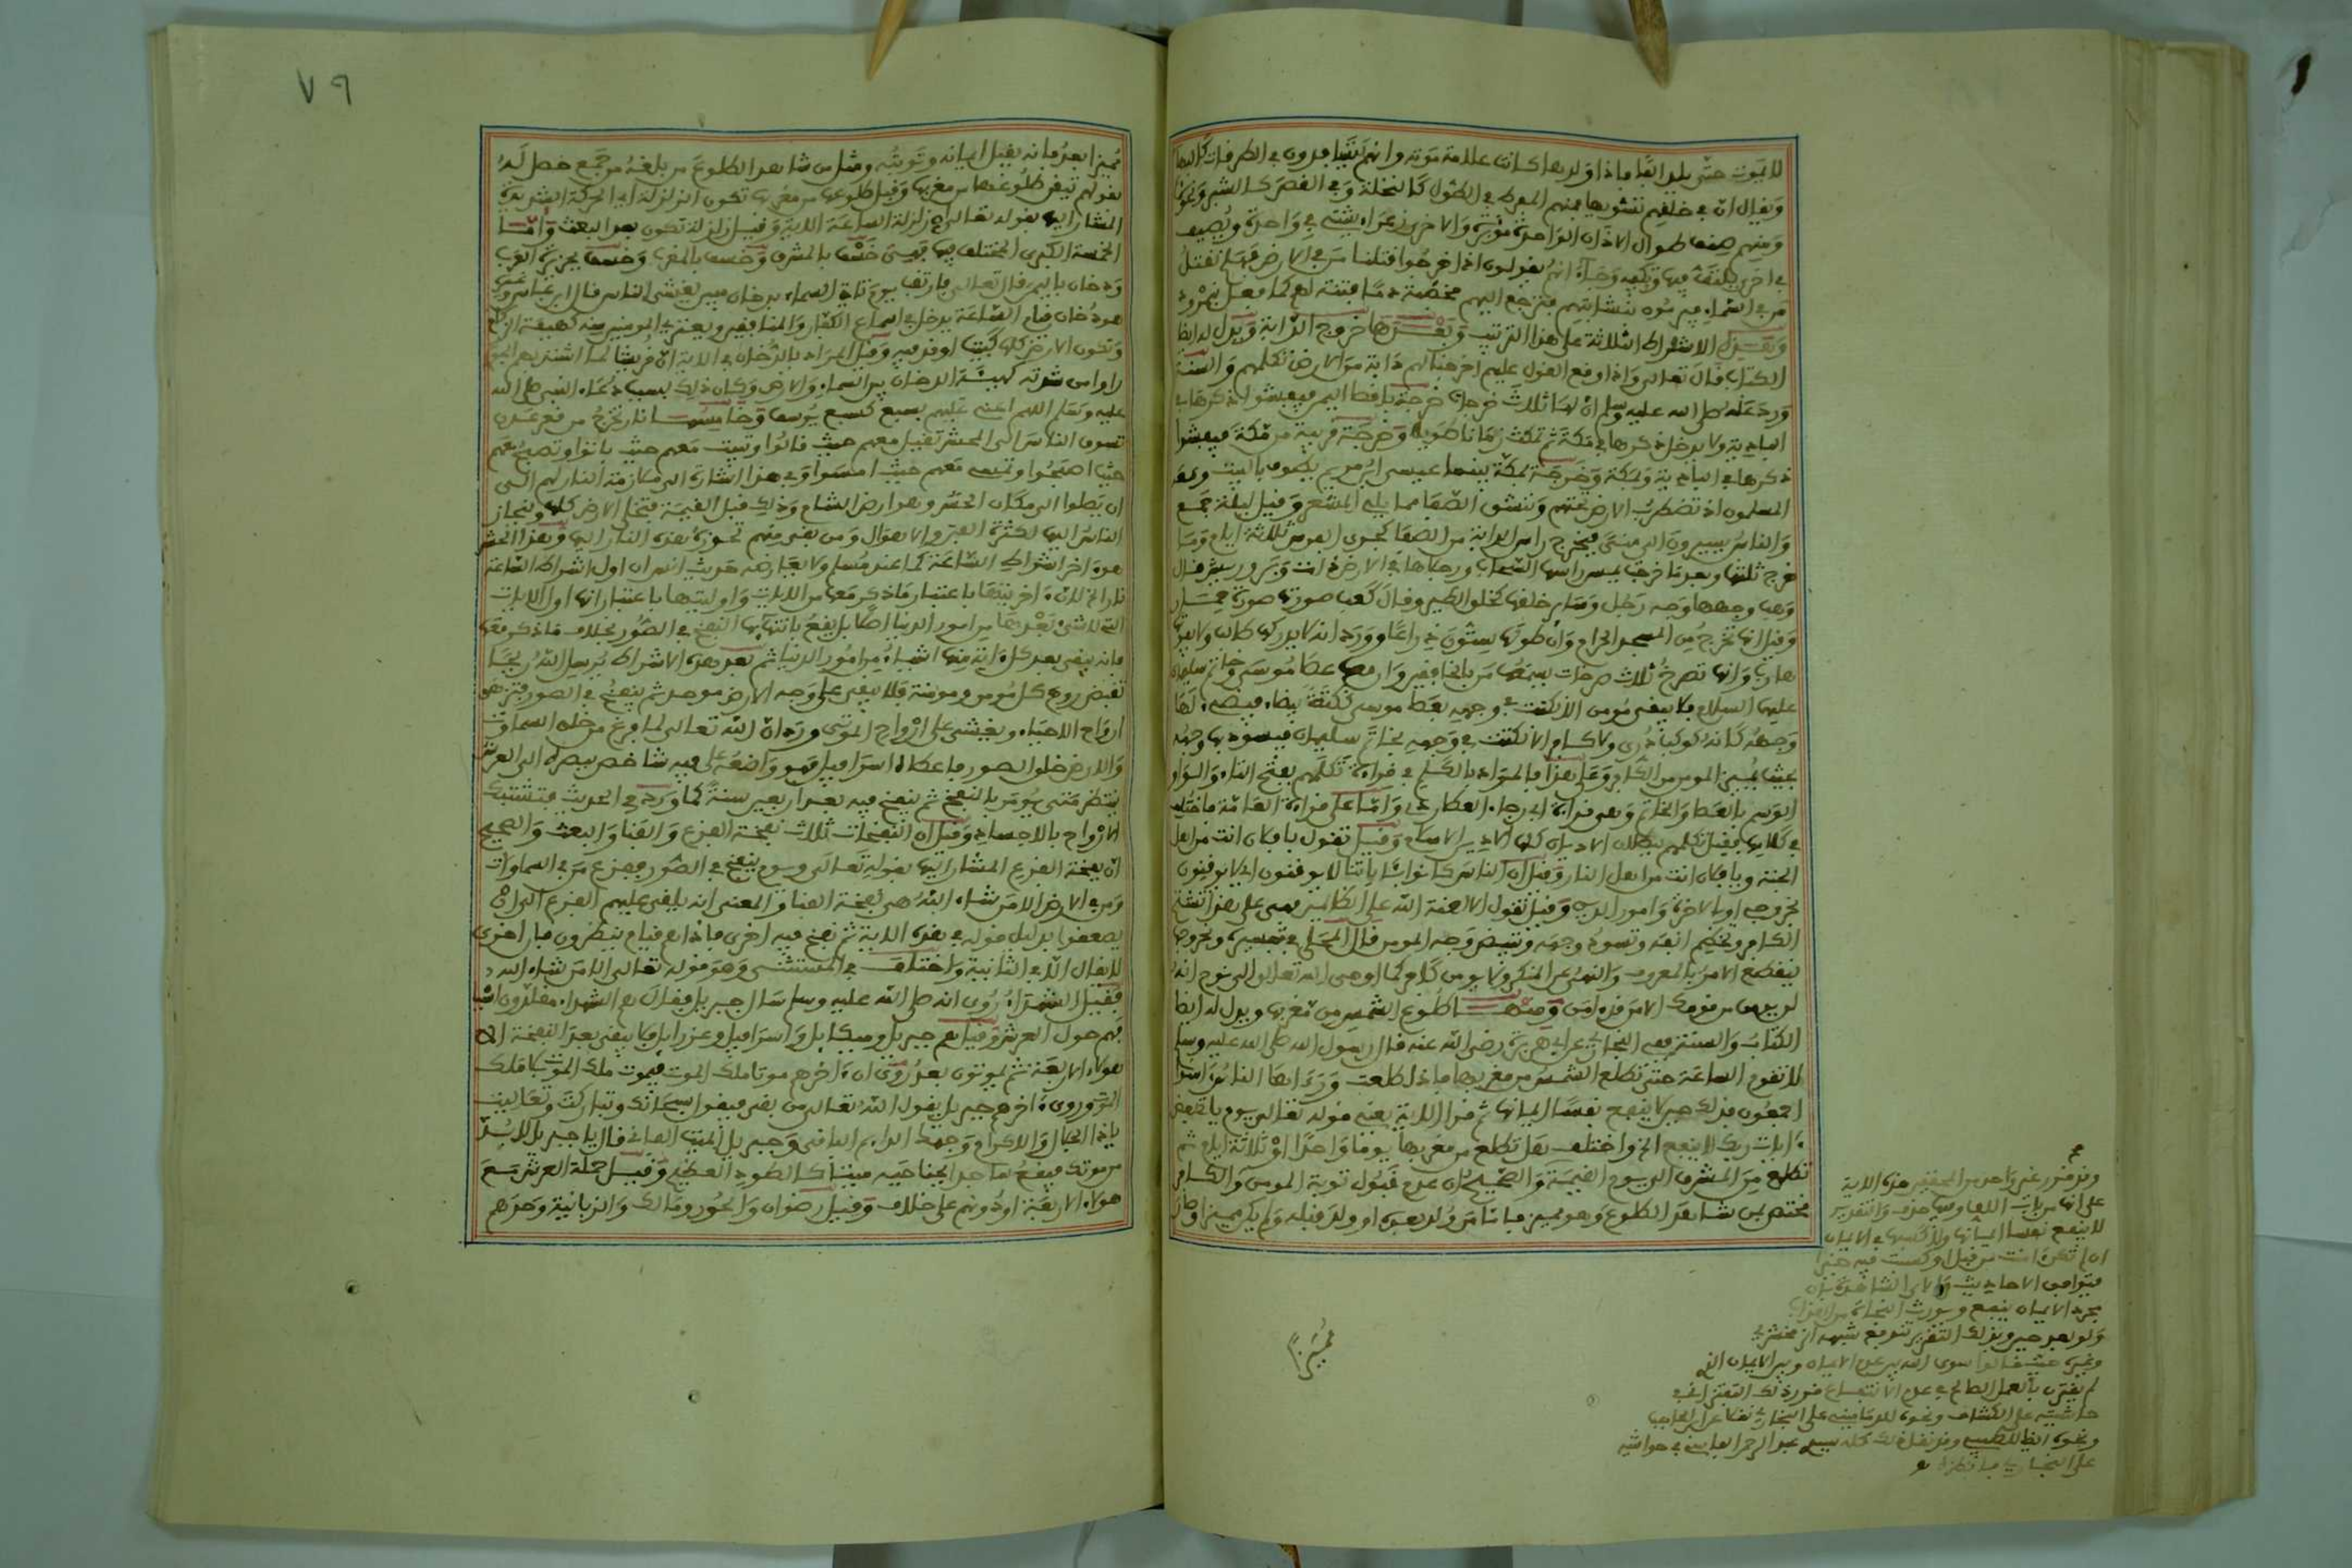 لا يموت حتى يلد الفا فاذا ولدها كانت علامة موته وانهم يتسافدون في الطرقات كالبهائم
ويقال ان في خلقهم تشويها فمنهم المفرط في الطول كالنخلة وفي القصر كالشبر ونحوه
ومنهم صنف طوال الاذان الواحدة وبرة والاخرى زعراء يشتي في واحدة ويصيف
في اخرى يلتقه فيها وتكفيه وجاء انهم يقولون اذا خرجوا قتلنا من في الارض فهلم نقتل
من في السماء فيرمون بنشابهم فترجع اليهم مخضبة دما فتنة لهم كما فعل بنمرود
وبعد الاشراط الثلاثة على هذا الترتيب وبعدها خروج الدابة ويدل له ايضا
الكتاب قال تعالى واذا وقع القول عليهم اخرجنا لهم دابة من الارض تكلمهم والسنة
ورد عنه صلى الله عليه وسلم ان لها ثلاث خرجات خرجة باقصا اليمن فيفشو ذكرها في
البادية ولا يدخل ذكرها في مكة ثم تمكث زمانا طويلا وخرجة قريبة من مكة فيفشوا
ذكرها في البادية وبمكة وخرجة بمكة بينما عيسى ابن مريم يطوف بالبيت ومعه
المسلمون اذ تضطرب الارض تحتهم وتنشق الصفا مما يلي المشعر وقيل ليلة جمع
والناس يسيرون الى منى فيخرج راس الدابة من الصفا كجري الفرس ثلاثة ايام وما
خرج ثلثها وبعد ما خرجت يمس راسها السحاب ورجلاها في الارض ذات وبر وريش قال
وهب وجهها وجه رجل وساير خلقها كخلق الطير وقال كعب صورتها صورة حمار
وقيل انها تخرج من المسجد الحرام وان طولها ستون ذراعا وورد انه لا يدركها طالب ولا يفوتها
هارب وانها تصرخ ثلاث صرخات يسمعها من بالخافقين وان معها عصا موسى وخاتم سليمان
عليهما السلام فلا يبقى مومن الا نكتت في وجهه بعصا موسى نكتة بيضاء فيضيء لها
وجهه كانه كوكب دري ولا كافر الا نكتت في وجهه بخاتم سليمان فيسود بها وجهه
بحيث يميز المومن من الكافر وعلى هذا فالمراد بالكلم في قراءة تكلمهم بفتح التاء
الوسم بالعصا والخاتم وهي قراءة ابي رجاء العطاردي واما على قراءة العامة فاختلف
في كلامها فقيل تكلمهم ببطلان الاديان كلها الا دين الاسلام وقيل تقول يا فلان انت من اهل
الجنة ويا فلان انت من اهل النار وقيل ان الناس كانوا باياتنا لا يوقنون اي لا يوقنون
بخروجي او بالاخرة وامور الدين وقيل تقول الا لعنة الله على الظالمين فهي على هذا تنقم
الكافر وتخطم انفه وتسود وجهه وتبيض وجه المومن قال المحلي في تفسيره وبخروجها
ينقطع الامر بالمعروف والنهي عن المنكر ولا يومن كافر كما اوحى الله تعالى الى نوح انه
لن يومن من قومك الا من قد امن ومنها طلوع الشمس من مغربها ويدل له ايضا
الكتاب والسنة ففي البخاري عن ابي هريرة رضي الله عنه قال رسول الله صلى الله عليه وسلم
لا تقوم الساعة حتى تطلع الشمس من مغربها فاذا طلعت وراءها الناس امنوا
اجمعون فذلك حين لا ينفع نفسا ايمانها ثم قرا الاية يعني قوله تعالى يوم ياتي بعض
ءايات ربك لا ينفع الخ واختلف هل تطلع من مغربها يوما واحدا او ثلاثة ايام ثم
تطلع من المشرق الى يوم القيمة والصحيح ان عدم قبول توبة المومن والكافر
مختص بمن شاهد الطلوع وهو مميز فاما من ولد بعده او ولد قبله ولم يكن مميزا
وقد قرر غير واحد من المحققين هذه الاية
على انها من باب اللف وفيها حذف والتقدير
لا ينفع نفسا ايمانها ولا كسبها في الايمان
ان لم تكن ءامنت من قبل او كسبت فيه خيرا
فتوافق الاحاديث والاي الشاهدة بان
مجرد الايمان ينفع ويورث النجاة من العذاب
ولو بعد حين وبذلك التقرير تندفع شبهة الزمخشري
وغيره حيث قالوا سوى الله بين عدم الايمان وبين الايمان الذي
لم يقترن بالعمل الصالح في عدم الانتفاع قرر ذلك التفتزاني في
حاشيته على الكشاف ونحوه للدماميني على البخاري نقلا عن ابن الحاجب
ونحوه ايضا للطيبي وقد نقل ذلك كله سيدي عبد الرحمن الفاسي في حواشيه
على البخاري فانظره
مميزا
٧٩
مميزا بعد فانه يقبل ايمانه وتوبته ومثل من شاهد الطلوع من بلغه من جمع حصل له
بقولهم تيقن طلوعها من مغربها وقبل طلوعها من مغربها تكون الزلزلة اي الحركة الشديدة
المشار اليها بقوله تعالى ان زلزلة الساعة الاية وقيل زلزلة تكون بعد البعث واما
الخمسة الكبرى المختلف فيها فهي خسف بالمشرق وخسف بالمغرب وخسف بجزيرة العرب
ودخان باليمن قال تعالى فارتقب يوم تاتي السماء بدخان مبين يغشى الناس قال ابن عباس وغيره
هو دخان قبل الساعة يدخل في اسماع الكفار والمنافقين ويعتري المومنين منه كهيئة الزكام
وتكون الارض كلها كبيت اوقد فيه وقيل المراد بالدخان في الاية ان قريشا لما اشتد بهم الجوع
راوا من شدته كهيئة الدخان بين السماء والارض وكان ذلك بسبب دعاء النبي صلى الله
عليه وسلم اللهم اعني عليهم بسبع كسبع يوسف وخامسها نار تخرج من قعر عدن
تسوق الناس الى المحشر تقيل معهم حيث قالوا وتبيت معهم حيث باتوا وتصبح معهم
حيث اصبحوا وتمسي معهم حيث امسوا وفي هذا اشارة الى ملازمة النار لهم الى
ان يصلوا الى مكان الحشر وهو ارض الشام وذلك قبل القيمة فتخلى الارض كلها وينحاز
الناس اليها لكثرة الفتن والاهوال ومن بقى منهم تحوزه هذه النار اليها وهذا الحشر
هو ءاخر اشراط الساعة كما عند مسلم ولا يعارضه حديث انس ان اول اشراط الساعة
نار الخ لان ءاخريتها باعتبار ما ذكر معها من الايات واوليتها باعتبار انها اول الايات
التي لا شيء بعدها من امور الدنيا اصلا بل يقع بانتهائها النفخ في الصور بخلاف ما ذكر معها
فانه يبقى بعد كل ءاية منها اشياء من امور الدنيا ثم بعد هذه الاشراط يرسل الله ريحا
تقبض روح كل مومن ومومنة فلا يبقى على وجه الارض موحد ثم ينفخ في الصور فتزهق
ارواح الاحياء ويغشى على ارواح الموتى ورد ان الله تعالى لما فرغ من خلق السماوات
والارض خلق الصور فاعطاه اسرافيل فهو واضعه على فيه شاخص ببصره الى العرش
ينتظر متى يومر بالنفخ ثم ينفخ فيه بعد اربعين سنة كما ورد في الحديث فتشتبك
الارواح بالاجساد وقيل ان النفخات ثلاث نفخة الفزع والفنا والبعث والصحيح
ان نفخة الفزع المشار اليها بقوله تعالى ويوم ينفخ في الصور ففزع من في السماوات
ومن في الارض الا من شاء الله هي نفخة الفنا والمعنى انه يلقى عليهم الفزع الى ان
يصعقوا بدليل قوله في هذه الاية ثم نفخ فيه اخرى فاذا هم قيام ينظرون فان اخرى
لا يقال الا في الثانية واختلف في المستثنى وهو قوله تعالى الا من شاء الله
فقيل الشهداء روي انه صلى الله عليه وسلم سال جبريل فقال هم الشهداء متقلدون اسيافهم
فهم حول العرش وقيل هم جبريل وميكايل واسرافيل وعزرايل فلا يبقى بعد النفخة الا
هولاء الاربعة ثم يموتون بعد روي ان ءاخرهم موتا ملك الموت فيموت ملك الموت بلا ملك
الموت وروي ءاخرهم جبريل يقول الله تعالى من بقى فيقول سبحانك وتباركت وتعاليت
ياذا الجلال والاكرام وجهك الدايم الباقي وجبريل الميت الفاني قال يا جبريل لابد
من موتك فيقع ساجدا بجناحيه ميتا كالطود العظيم وقيل حملة العرش مع
هولاء الاربعة او دونهم على خلاف وقيل رضوان والحور ومالك والزبانية وحدهم